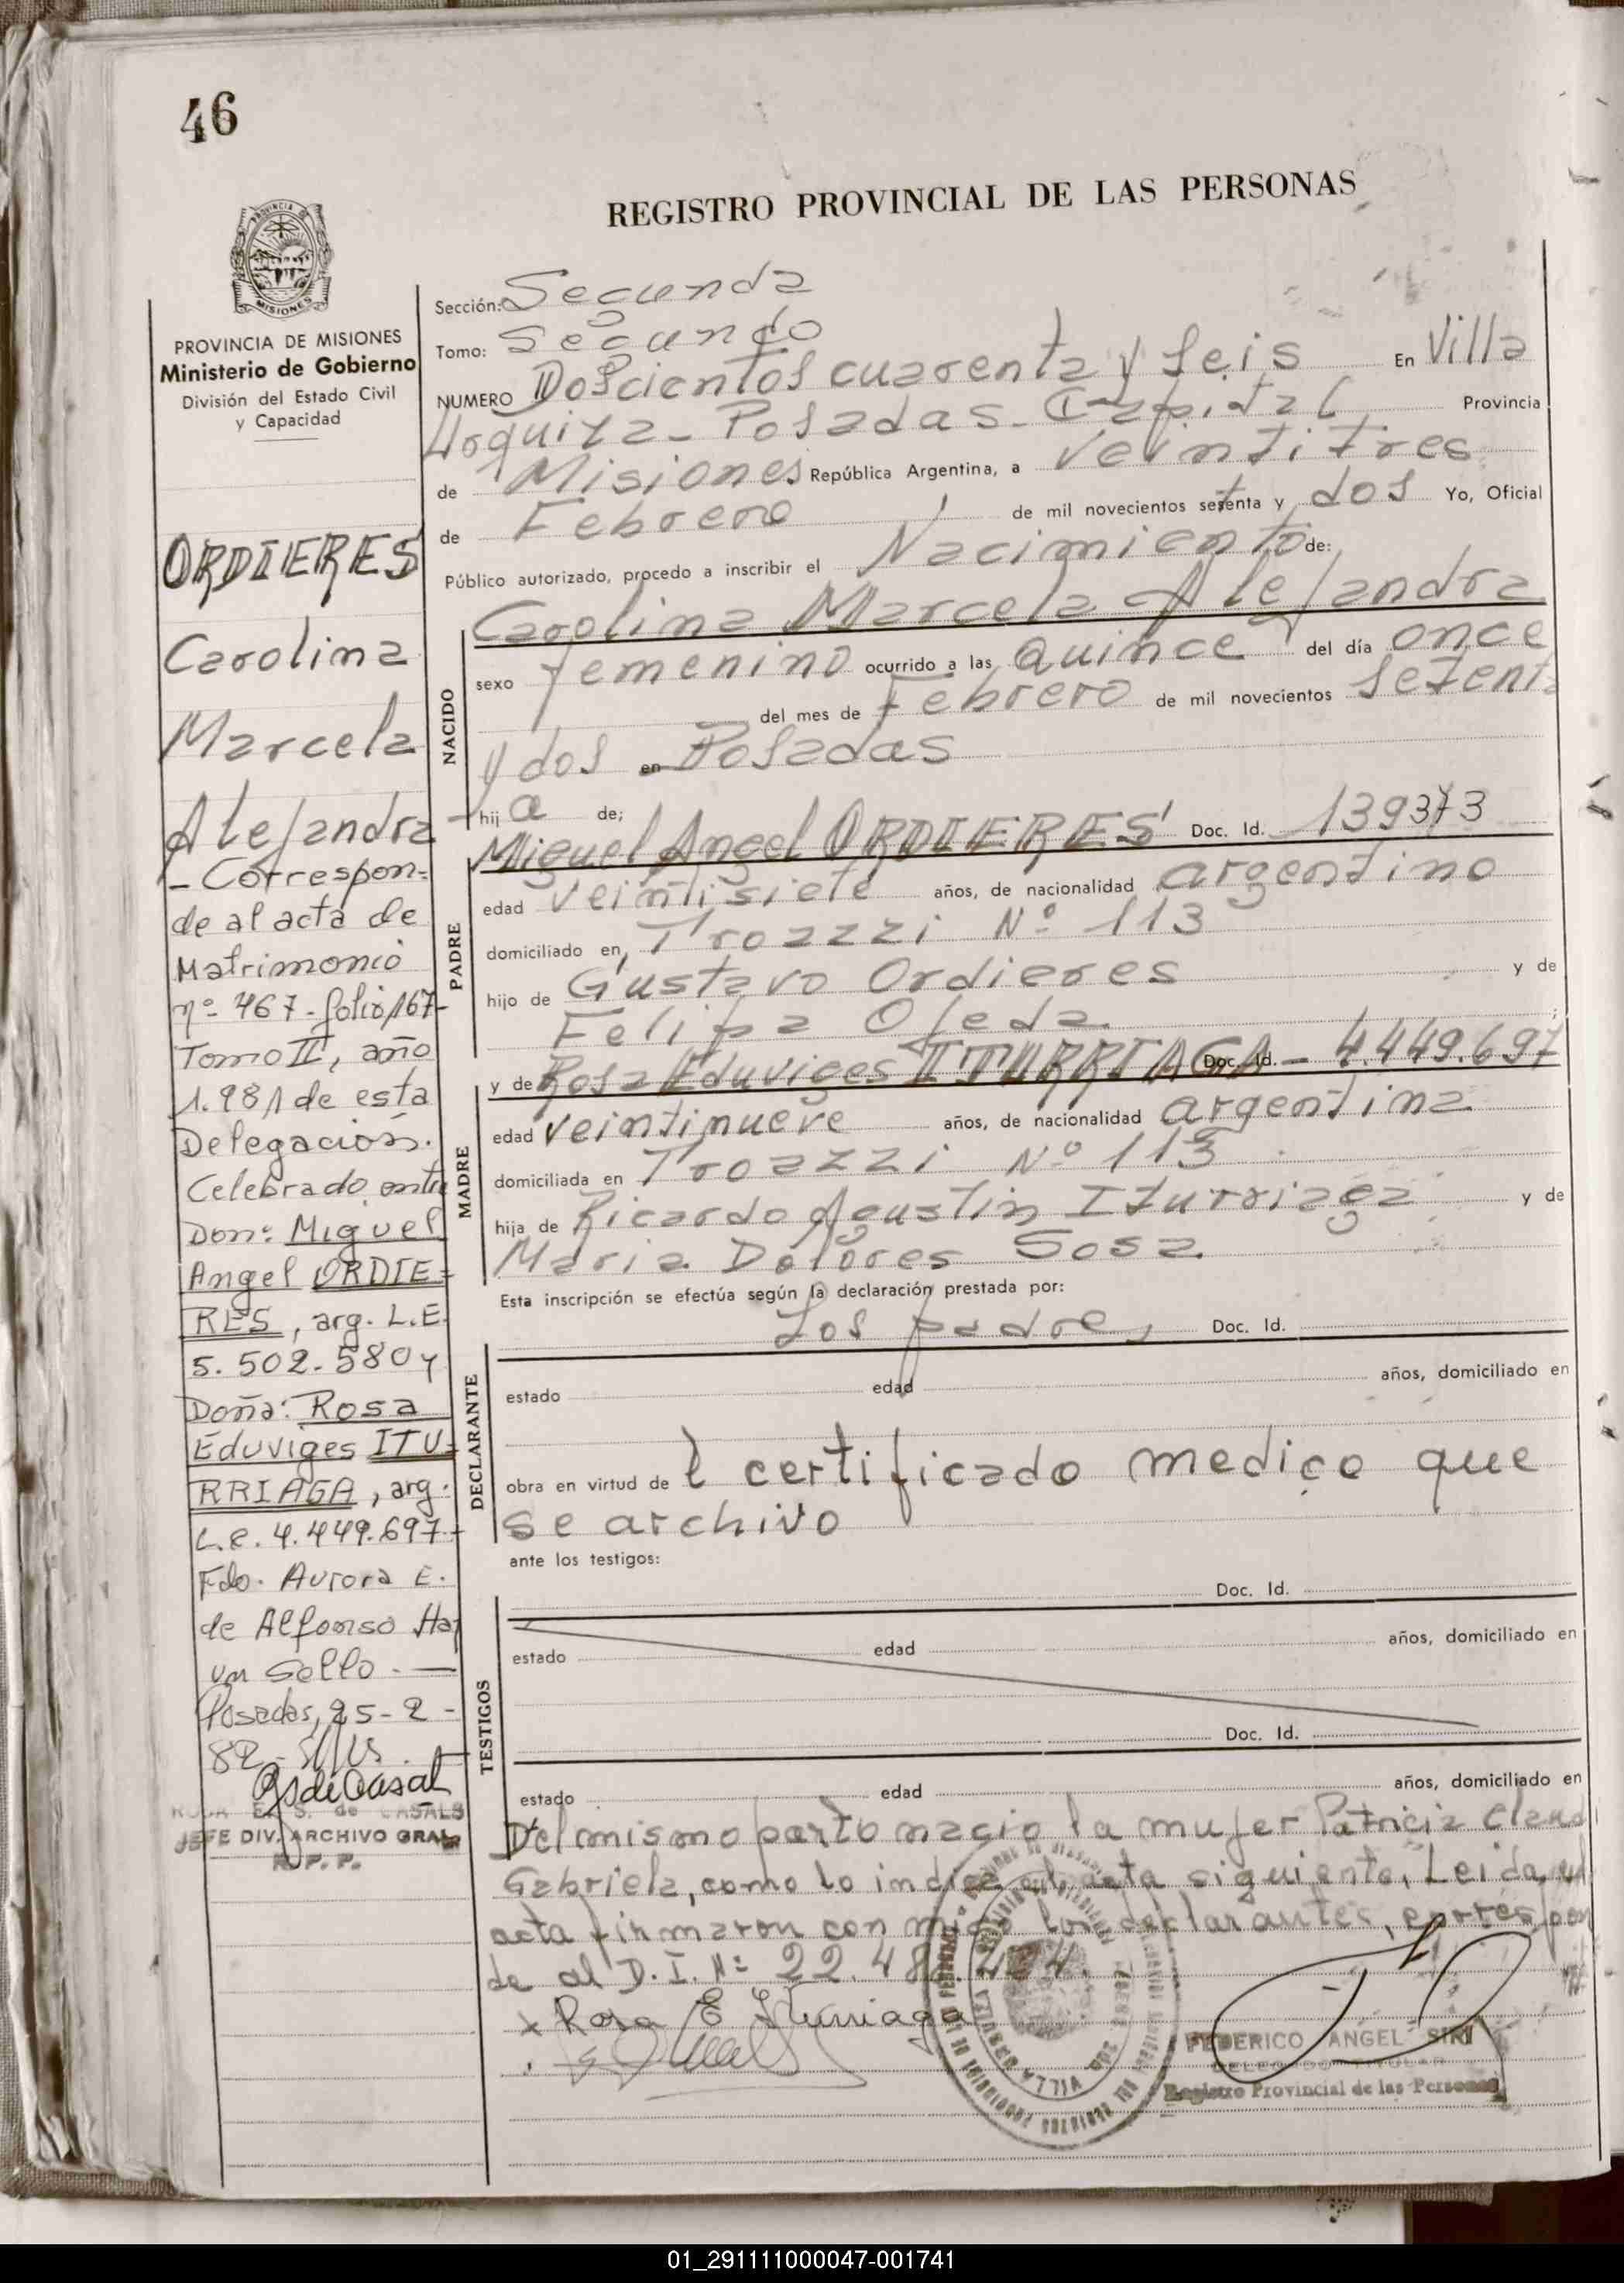 46
REGISTRO PROVINCIAL DE LAS PERSONAS
PROVINCIA DE MISIONES
Ministerio de Gobierno
División del Estado Civil
y Capacidad
ORDIERES
Carolina
Marcela
Alejandra
- Correspon=
de al acta de
Matrimonio
nº 467 - folio 167-
Tomo II, año
1.981 de esta
Delegación.
Celebrado entre
Don: Miguel
Angel ORDIE=
RES, arg. L.E.
5.502.580 y
Doña: Rosa
Eduviges ITU=
RRIAGA, arg.
L.C. 4.449.697-
Fdo. Aurora E.
de Alfonso Hay
un Sello. —
Posadas, 25-2-
82-
de Casals
JEFE DIV. ARCHIVO GRAL
R.P.P.
Sección: Segunda
Tomo: Segundo
NUMERO Doscientos cuarenta y seis En Villa
Urquiza - Posadas - Capital Provincia
de Misiones República Argentina, a veintitres
de Febrero de mil novecientos setenta y dos Yo, Oficial
Público autorizado, procedo a inscribir el Nacimiento de:
Carolina Marcela Alejandra
NACIDO
sexo femenino ocurrido a las Quince del día once
del mes de Febrero de mil novecientos setenta
y dos en Posadas
hij a de;
Miguel Angel ORDIERES Doc. Id. 139373
PADRE
edad veintisiete años, de nacionalidad argentino
domiciliado en, Trozzzi Nº 113
hijo de Gustavo Ordieres y de
Felipa Ojeda.
y de Rosa Eduviges ITURRIAGA Doc. Id. - 4.449.697
MADRE
edad veintinueve años, de nacionalidad argentina
domiciliada en Trozzzi Nº 113
hija de Ricardo Agustin Iturriaga y de
Maria Dolores Sosa.
Esta inscripción se efectúa según la declaración prestada por:
Los padres Doc. Id.
DECLARANTE
estado edad años, domiciliado en
obra en virtud de l certificado medico que
se archivo
ante los testigos:
Doc. Id.
TESTIGOS
estado edad años, domiciliado en
Doc. Id.
estado edad años, domiciliado en
Del mismo parto nacio la mujer Patricia
Gabriela, como lo indica el acta siguiente, Leida el
acta firmaron con migo los declarantes, correspon
de al D.I. Nº 22.48
x Rosa E Iturriaga
FEDERICO ANGEL SIRI
DELEGADO TITULAR
Registro Provincial de las Personas
01_291111000047-001741